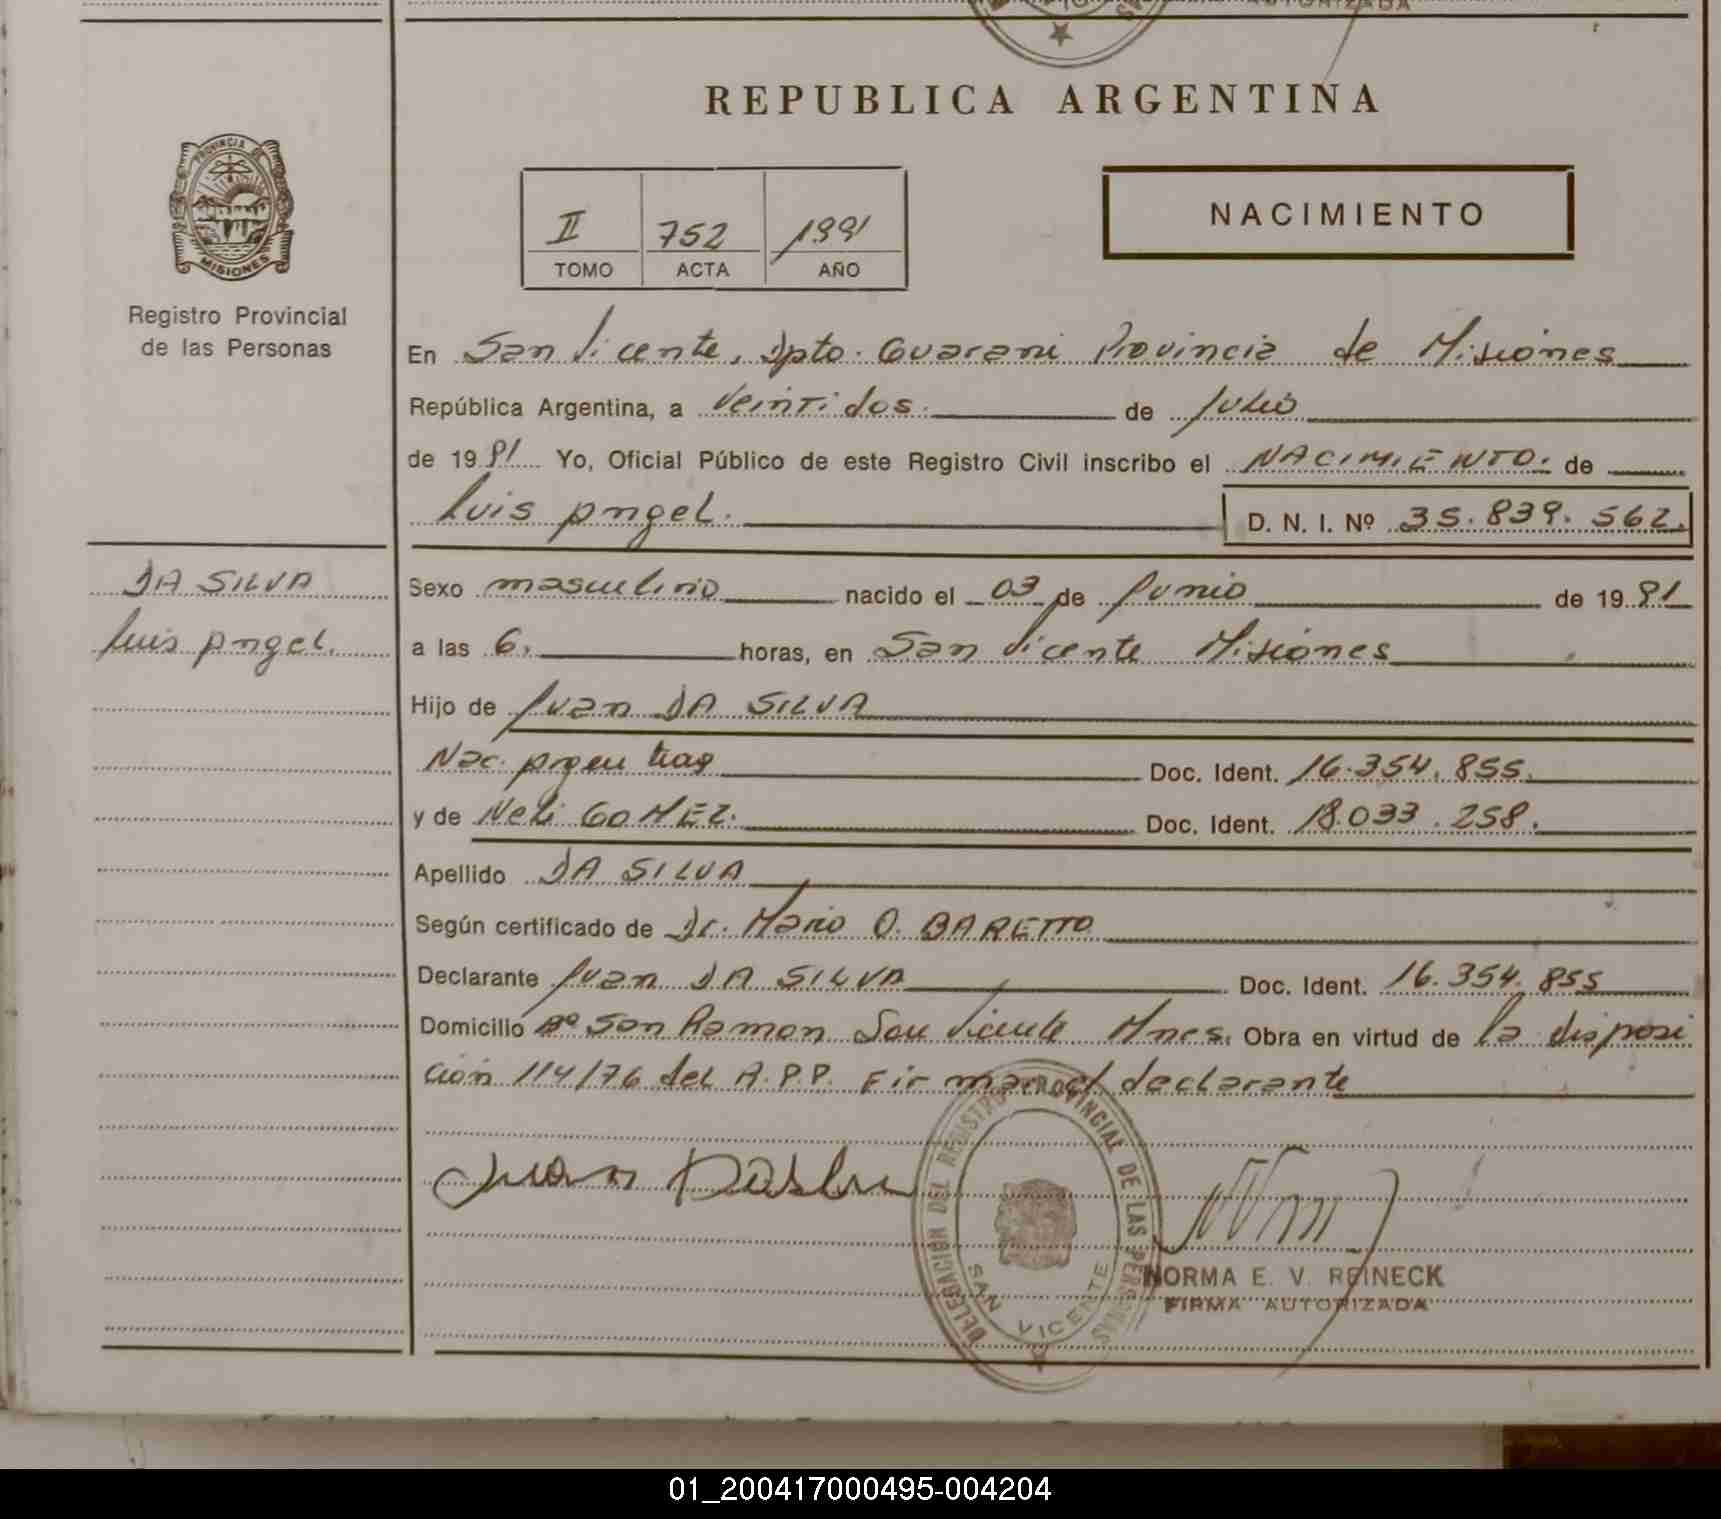 AUTORIZADA
REPUBLICA ARGENTINA
PROVINCIA DE
MISIONES
Registro Provincial
de las Personas
II 752 1991
TOMO ACTA AÑO
NACIMIENTO
En San Vicente, Dpto. Guarani Provincia de Misiones
República Argentina, a Veintidos de Julio
de 19 91 Yo, Oficial Público de este Registro Civil inscribo el NACIMIENTO. de
Luis Angel. D. N. I. Nº 35.839.562.
DA SILVA
Luis Angel.
Sexo masculino nacido el 03 de Junio de 19 91
a las 6. horas, en San Vicente Misiones
Hijo de Juan DA SILVA
Nac. Argentinas Doc. Ident. 16.354.855.
y de Neli GOMEZ. Doc. Ident. 18.033.258.
Apellido DA SILVA
Según certificado de Dr. Mario O. BARETTO
Declarante Juan DA SILVA Doc. Ident. 16.354.855
Domicilio Bº San Ramon San Vicente Mnes. Obra en virtud de la disposi
ción 114/76 del A.P.P. Firma el declarante
Juan Dasilva
DELEGACIÓN DEL REGISTRO PROVINCIAL DE LAS PERSONAS
SAN VICENTE
NORMA E. V. REINECK
FIRMA AUTORIZADA
01_200417000495-004204